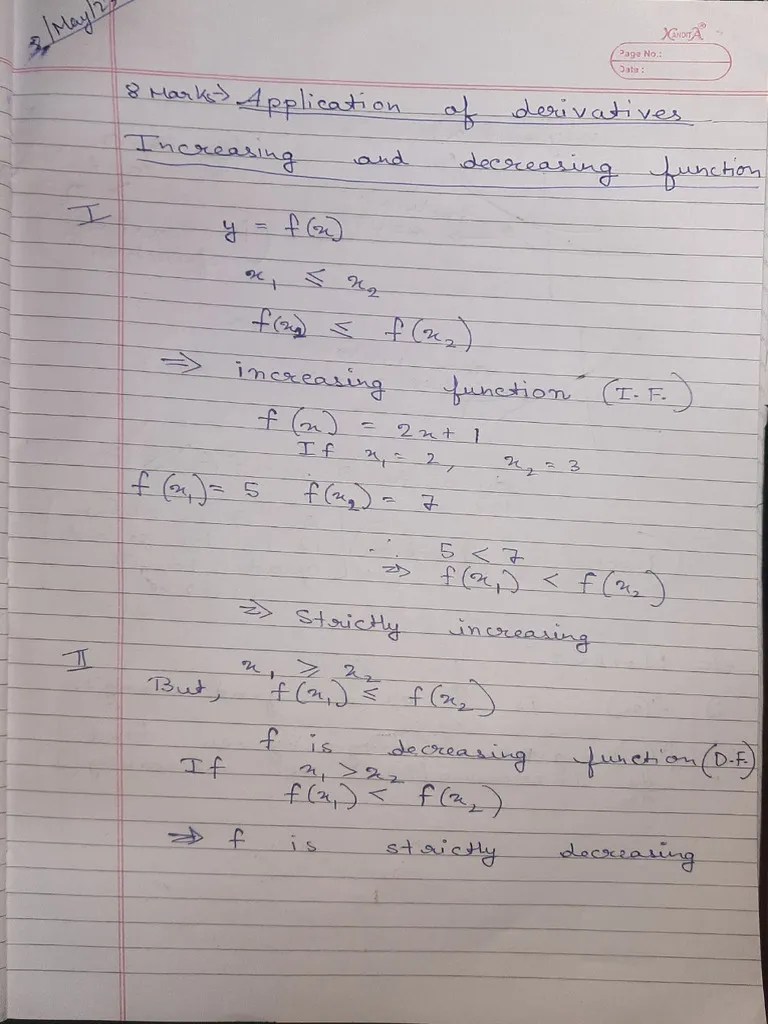 3/May/2
NANDITA®
Page No.:
Date:
8 Marks→ Application of derivatives
Increasing and decreasing function
I
y = f(x)
x₁ ≤ x₂
f(x₁) ≤ f(x₂)
⇒ increasing function (I.F.)
f(x) = 2x+1
If x₁ = 2, x₂ = 3
f(x₁) = 5 f(x₂) = 7
∴ 5 < 7
⇒ f(x₁) < f(x₂)
⇒ Strictly increasing
II
x₁ ≥ x₂
But, f(x₁) ≤ f(x₂)
f is decreasing function (D.F.)
If x₁ > x₂
f(x₁) < f(x₂)
⇒ f is strictly decreasing